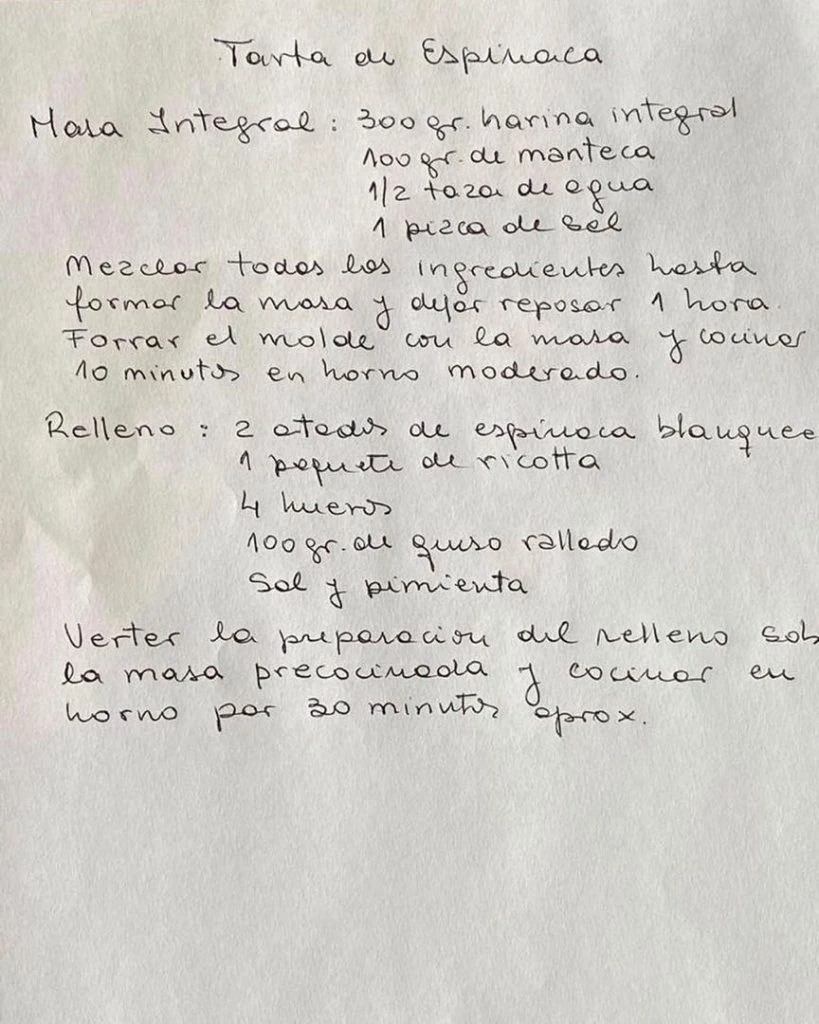 Tarta de Espinaca
Masa Integral : 300 gr. harina integral
100 gr. de manteca
1/2 taza de agua
1 pizca de sal
Mezclar todos los ingredientes hasta
formar la masa y dejar reposar 1 hora.
Forrar el molde con la masa y cocinar
10 minutos en horno moderado.
Relleno : 2 atados de espinaca blanquee
1 paquete de ricotta
4 huevos
100 gr. de queso rallado
Sal y pimienta
Verter la preparacion del relleno sob
la masa precocinada y cocinar en
horno por 30 minutos aprox.